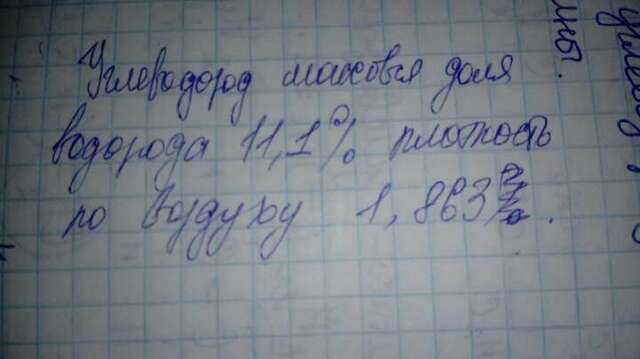 Углеводород массовья доля
водорода 11,1% плотность
по воздуху 1,863